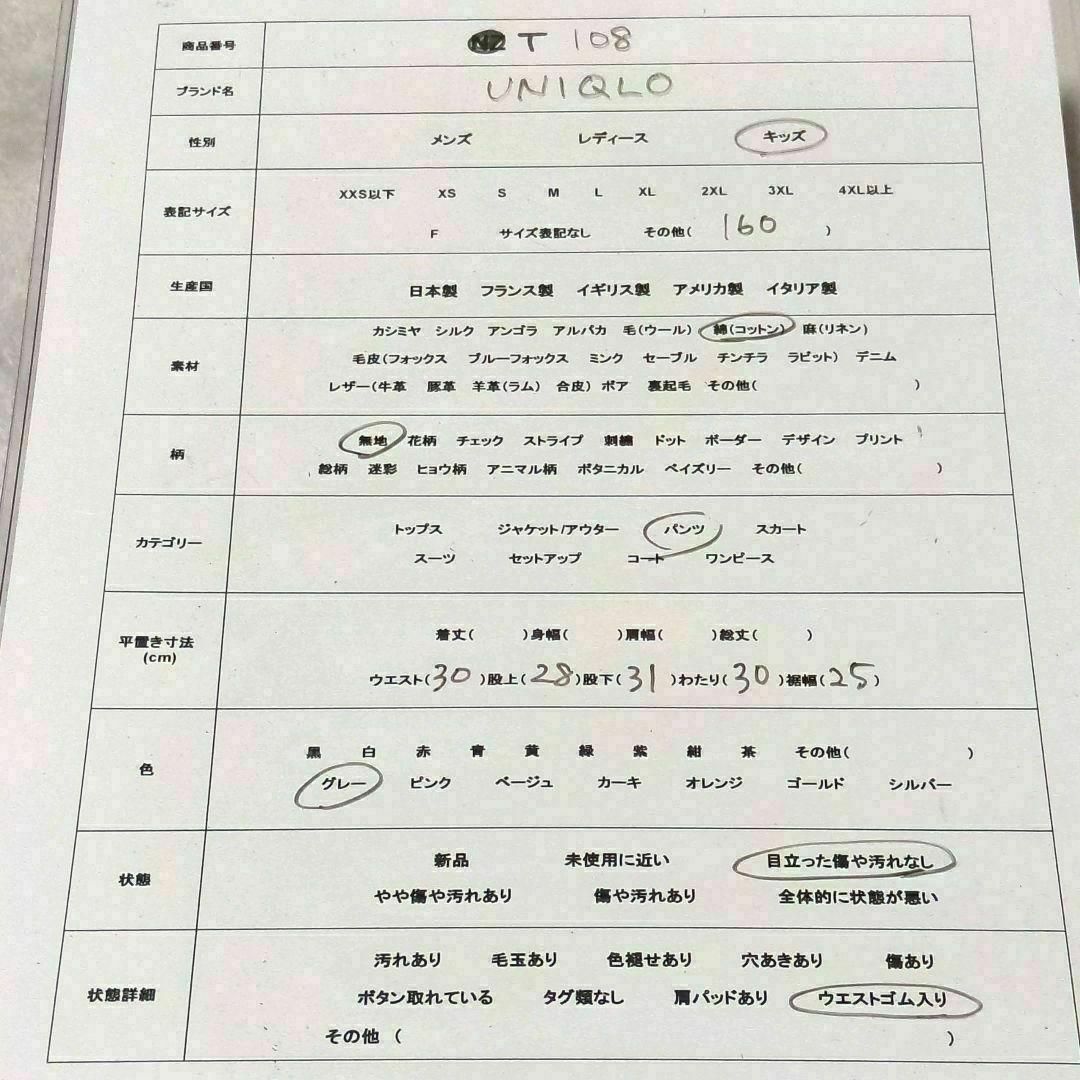 商品番号 NZ T 108
ブランド名 UNIQLO
性別 メンズ レディース キッズ
XXS以下 XS S M L XL 2XL 3XL 4XL以上
表記サイズ
F サイズ表記なし その他( 160 )
生産国 日本製 フランス製 イギリス製 アメリカ製 イタリア製
カシミヤ シルク アンゴラ アルパカ 毛(ウール) 綿(コットン) 麻(リネン)
素材 毛皮(フォックス ブルーフォックス ミンク セーブル チンチラ ラビット) デニム
レザー(牛革 豚革 羊革(ラム) 合皮) ボア 裏起毛 その他( )
柄 無地 花柄 チェック ストライプ 刺繍 ドット ボーダー デザイン プリント
総柄 迷彩 ヒョウ柄 アニマル柄 ボタニカル ペイズリー その他( )
カテゴリー トップス ジャケット/アウター パンツ スカート
スーツ セットアップ コート ワンピース
平置き寸法 着丈( )身幅( )肩幅( )総丈( )
(cm)
ウエスト(30)股上(28)股下(31)わたり(30)裾幅(25)
黒 白 赤 青 黄 緑 紫 紺 茶 その他( )
色
グレー ピンク ベージュ カーキ オレンジ ゴールド シルバー
新品 未使用に近い 目立った傷や汚れなし
状態
やや傷や汚れあり 傷や汚れあり 全体的に状態が悪い
汚れあり 毛玉あり 色褪せあり 穴あきあり 傷あり
状態詳細 ボタン取れている タグ類なし 肩パッドあり ウエストゴム入り
その他 ( )